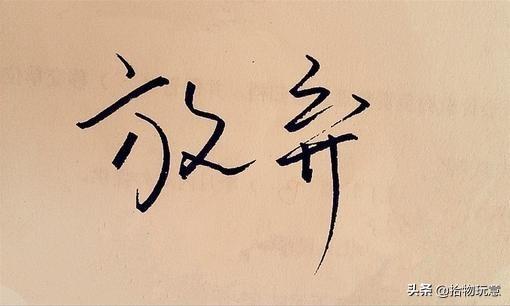 放弃
头条 @拾物玩意